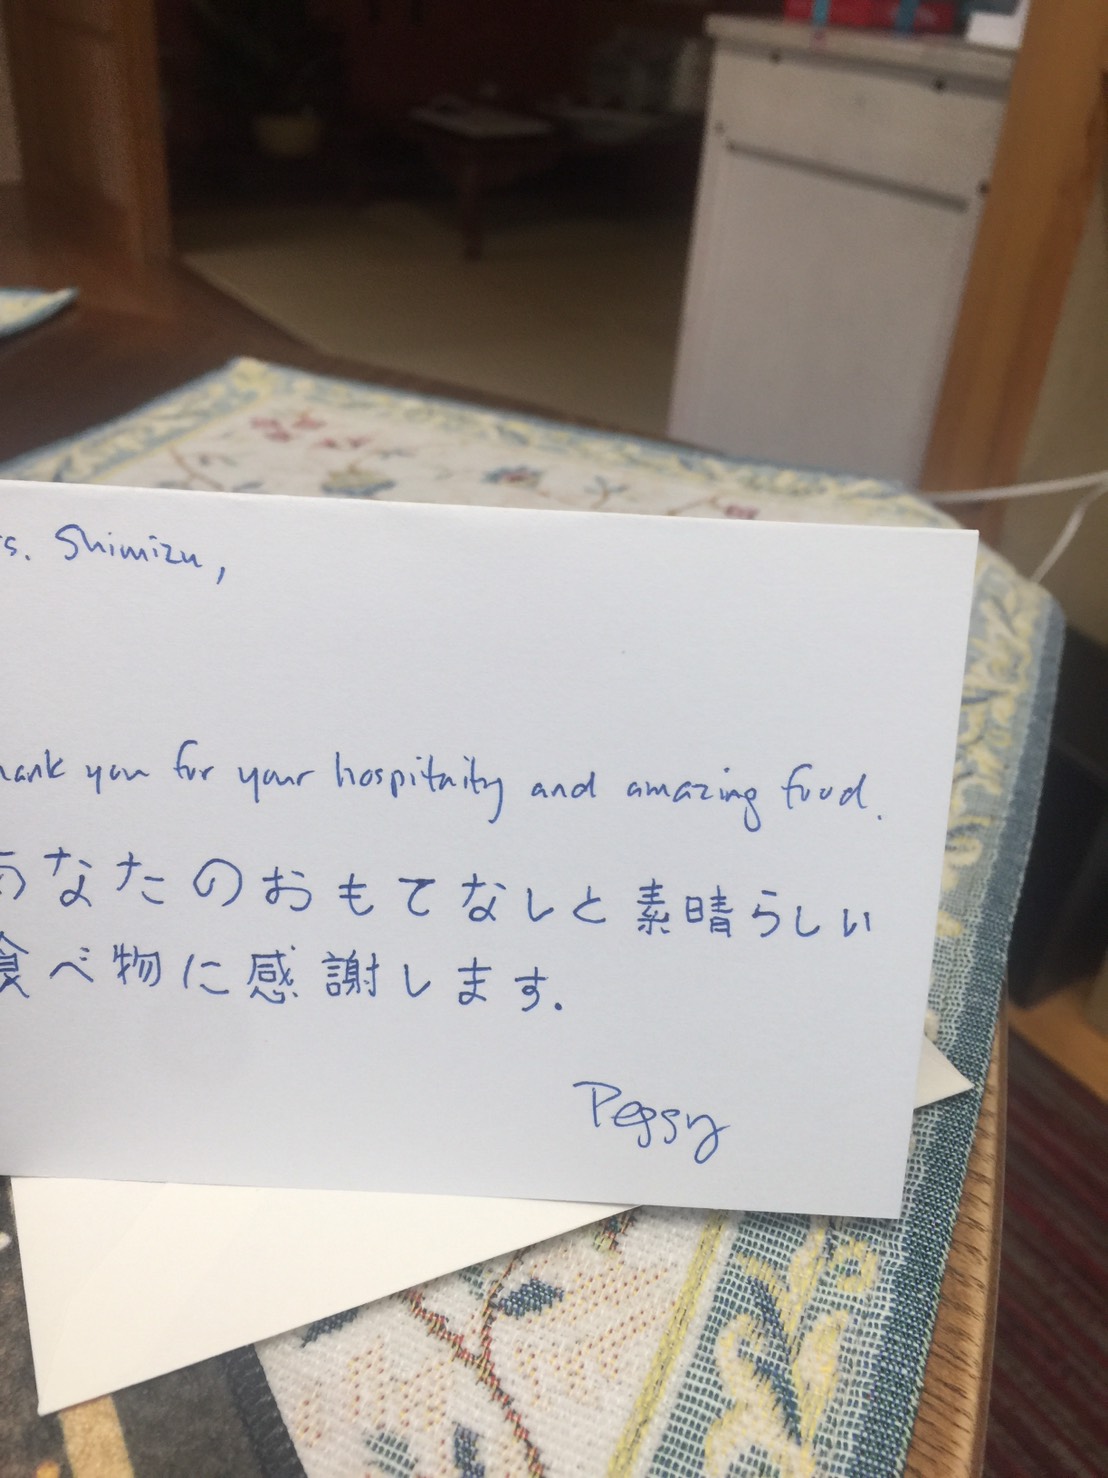 rs. Shimizu,
hank you for your hospitaity and amazing food.
あなたのおもてなしと素晴らしい
食べ物に感謝します.
Peggy